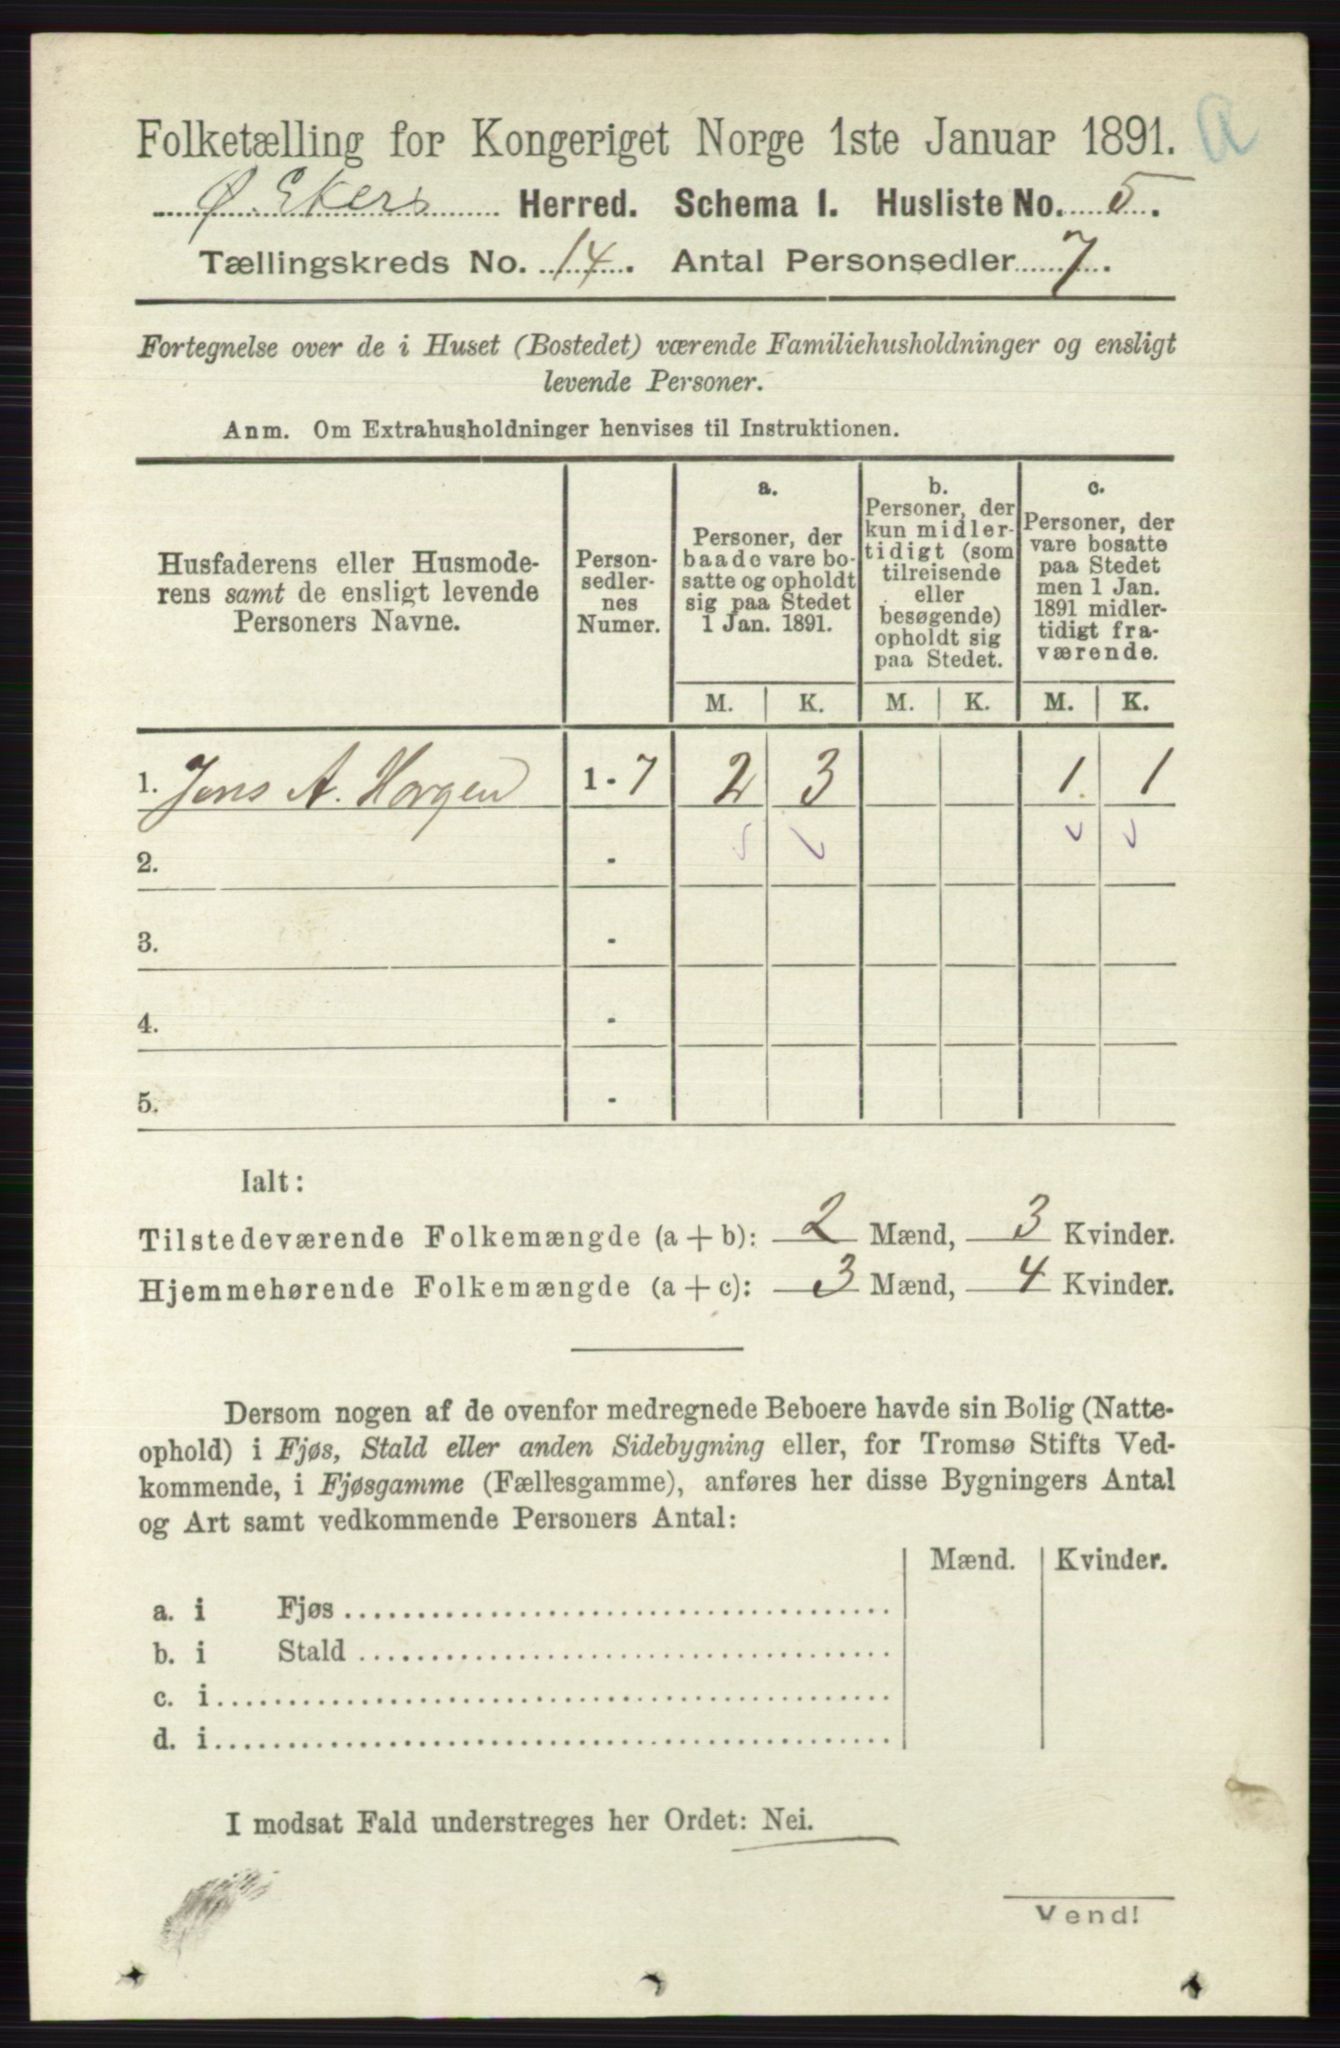 Folketælling for Kongeriget Norge 1ste Januar 1891.
a
Ø. Ekers Herred. Schema 1. Husliste No. 5.
Tællingskreds No. 14. Antal Personsedler 7.
Fortegnelse over de i Huset (Bostedet) værende Familiehusholdninger og ensligt
levende Personer.
Anm. Om Extrahusholdninger henvises til Instruktionen.
Husfaderens eller Husmode-
rens samt de ensligt levende
Personers Navne.
Person-
sedler-
nes
Numer.
a.
Personer, der
baade vare bo-
satte og opholdt
sig paa Stedet
1 Jan. 1891.
b.
Personer, der
kun midler-
tidigt (som
tilreisende
eller
besøgende)
opholdt sig
paa Stedet.
c.
Personer, der
vare bosatte
paa Stedet
men 1 Jan.
1891 midler-
tidigt fra-
værende.
M. K. M. K. M. K.
1. Jens A. Horgen 1 - 7 2 3 1 1
2. -
3. -
4. -
5. -
Ialt:
Tilstedeværende Folkemængde (a + b): 2 Mænd, 3 Kvinder.
Hjemmehørende Folkemængde (a + c): 3 Mænd, 4 Kvinder.
Dersom nogen af de ovenfor medregnede Beboere havde sin Bolig (Natte-
ophold) i Fjøs, Stald eller anden Sidebygning eller, for Tromsø Stifts Ved-
kommende, i Fjøsgamme (Fællesgamme), anføres her disse Bygningers Antal
og Art samt vedkommende Personers Antal:
Mænd. Kvinder.
a. i Fjøs
b. i Stald
c. i
d. i
I modsat Fald understreges her Ordet: Nei.
Vend!